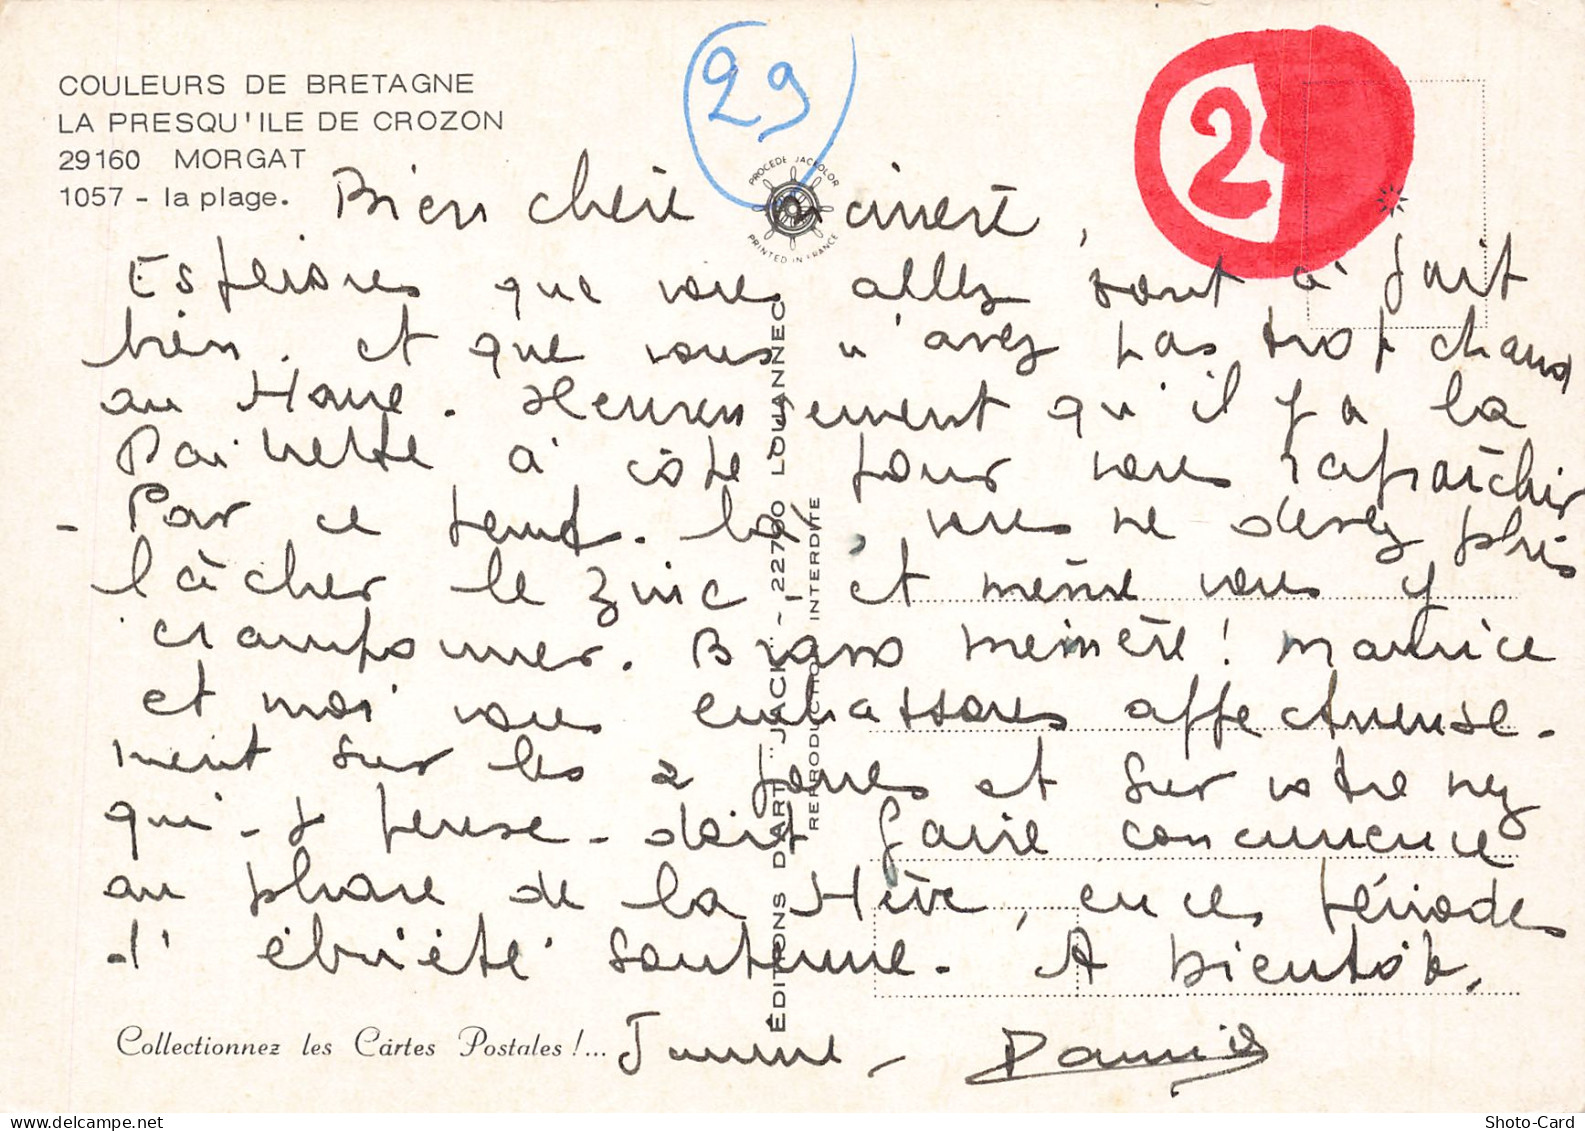 COULEURS DE BRETAGNE
LA PRESQU'ILE DE CROZON
29160 MORGAT
1057 - la plage.
29
2
PROCEDE JACKOLOR
PRINTED IN FRANCE
Bien chère
Espérons que vous allez tout à fait
bien. et que vous n'avez pas trop chaud
au Havre. Heureusement qu'il y a la
à côté pour vous rafraîchir
- Par ce temps-là, vous ne devez plus
lâcher le zinc - et même vous y
cramponner. Bravo mémère! Maurice
et moi vous embrassons affectueuse-
ment sur les 2 joues et sur votre nez
qui - je pense - doit faire concurrence
au phare de la Hève, en ces périodes
d'ébriété soutenue. A bientôt.
ÉDITIONS D'ART "JACK" - 22700 LOUANNEC
REPRODUCTION INTERDITE
Collectionnez les Cartes Postales !...
Shoto-Card